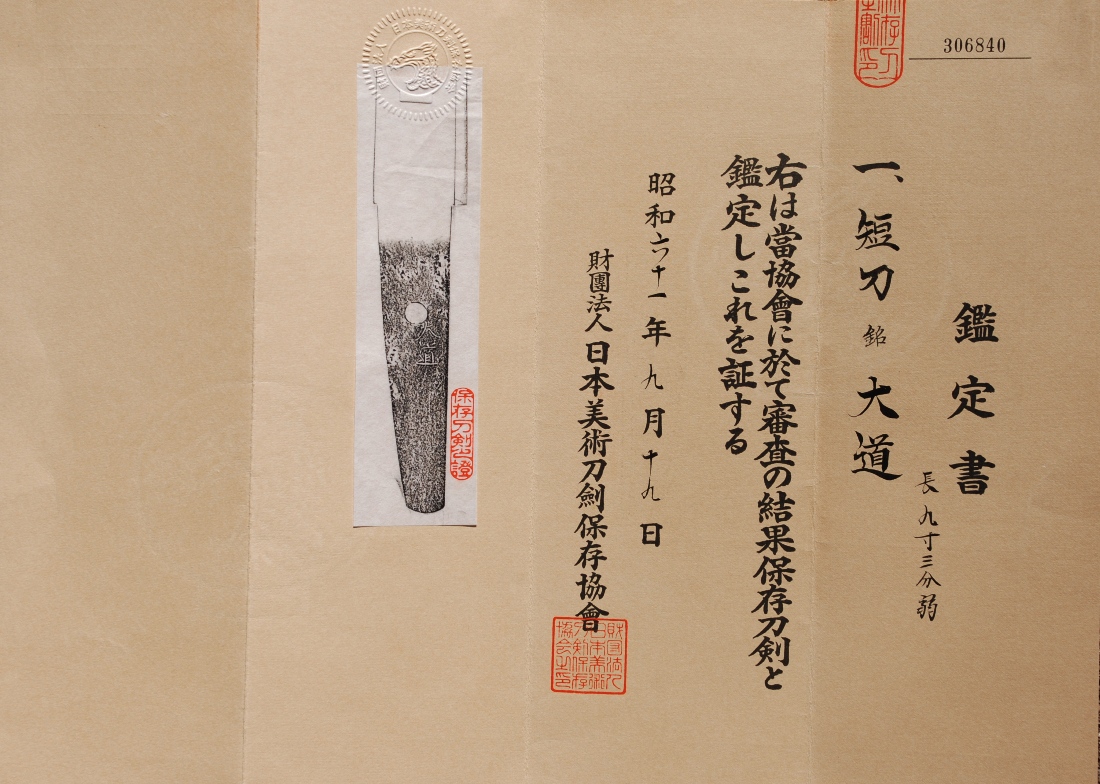 306840
鑑定書
一、短刀 銘 大道
長九寸三分弱
右は當協會に於て審査の結果保存刀剣と
鑑定しこれを証する
昭和六十一年九月十九日
財團法人日本美術刀劍保存協會
財団法人
日本美術
刀剣保存
協会之印
保存刀剣之證